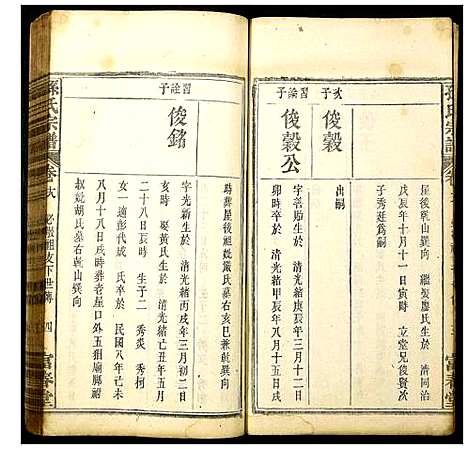 孫氏宗譜
屋後乾山巽向　繼娶廖氏生於　清同治
戊辰年十月十一日寅時　立堂兄俊賢次
子秀廷爲嗣
亥子
俊穀
出嗣
習論子
俊穀公
字善貽生於　清光緒庚辰年三月十二日
卯時卒於　清光緒甲辰年八月十五日戌
富春堂
時葬屋後祖妣嚴氏墓右亥巳兼乾巽向
習詮子
俊銘
字光新生於　清光緒丙戌年三月初二日
時　娶黃氏生於　清光緒己丑年五月
二十八日辰時　生子二　秀炎　秀柯
女一適彭代成　氏卒於　民國八年己未
八月十八日戌時葬老屋口外五狙廟腳祖
叔妣胡氏墓右乾山巽向
孫氏宗譜
卷六
必振祖支下世傳
四
富春堂